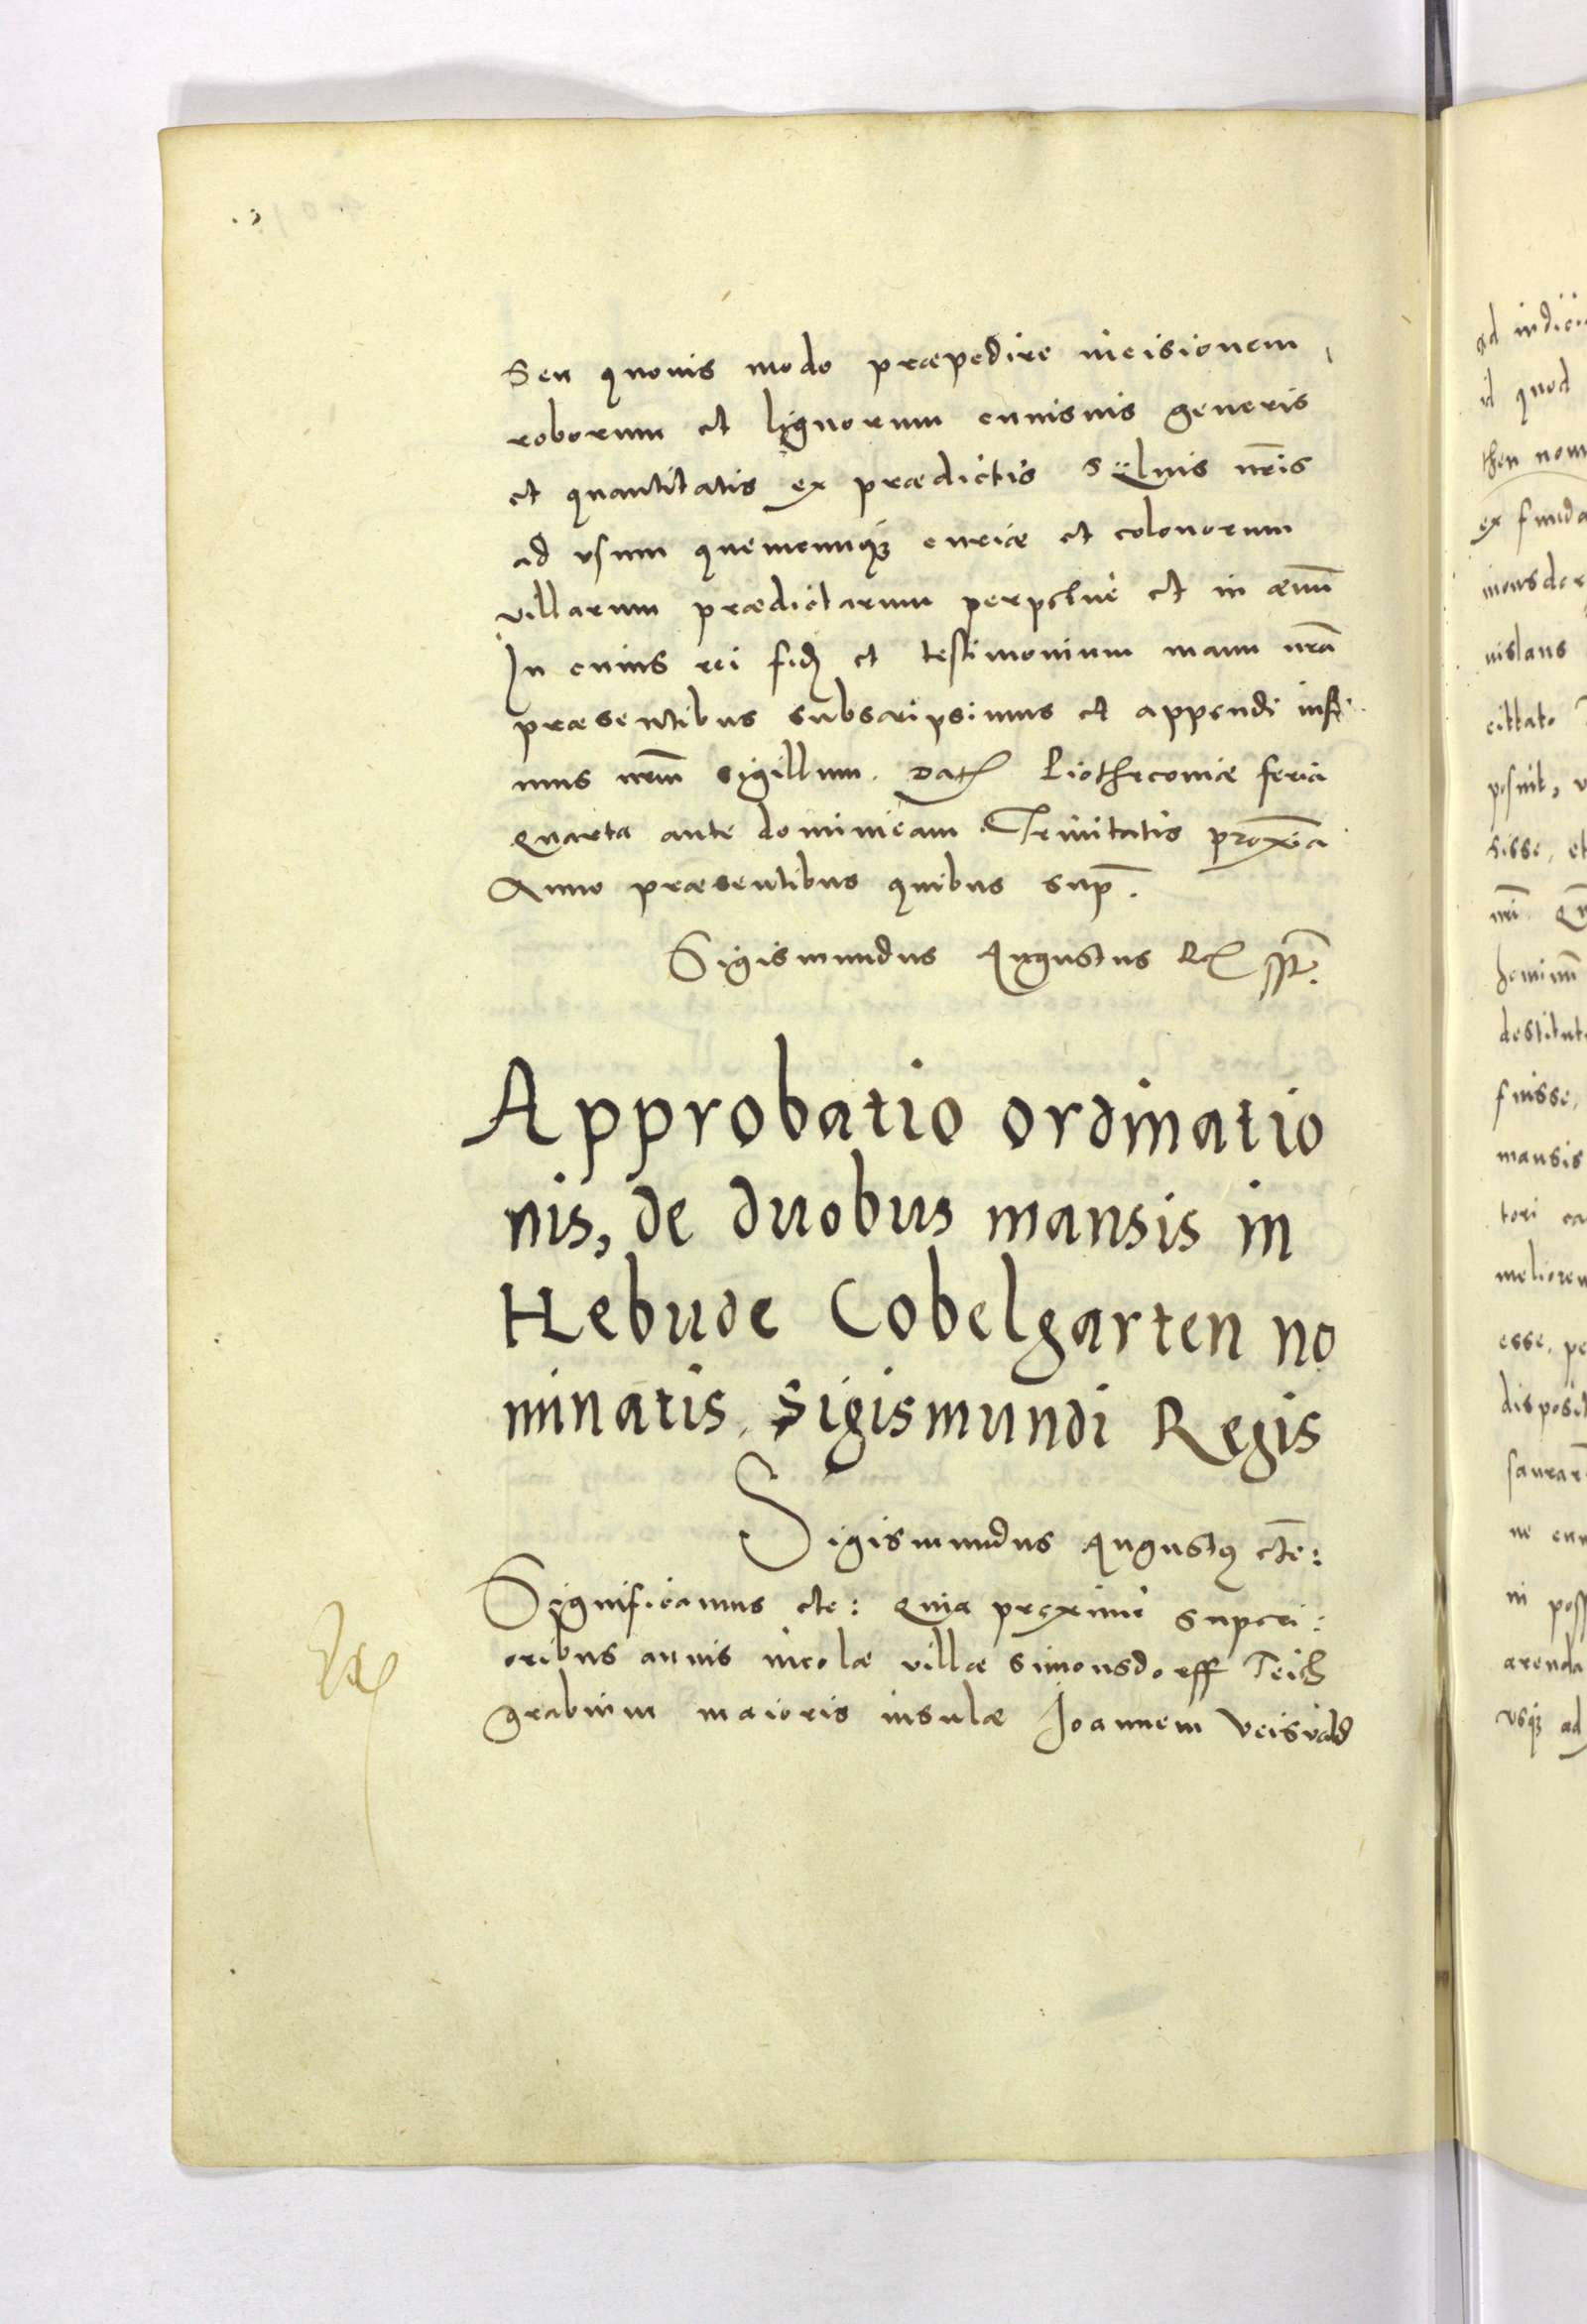 Seu quouis modo præpedire incisionem
roborum et lignorum cuiusuis generis
et quantitatis ex prædictis sÿluis nr̃is
ad vsum quemcunqʒ curiæ et colonorum
villarum prædictarum perpetuè et in æuũ
In cuius rei fidẽ et testimonium manu nrã
præsentibus subscripsimus et appendi iussi
mus nr̃m sigillum. Dat Piotrcouiæ feria
Quarta ante dominicam Trinitatis proxĩa
Anno præsentibus quibus sup̃.
Sigismundus Augustus Rex sp̃t.
Approbatio ordinatio
nis, de duobus mansis in
Hebude Cobelgarten no
minatis, Sigismundi Regis
Sigismundus Augustꝯ etc̃:
Significamus etc: Quia proximè superi:
oribus annis incolæ villæ Simonsdorff Teich
grabium maioris insulæ Joannem Veisvald
ad
id quod
then nom
ex funda
monsdor
uislaus
cittato
posuit,
sisse, et
nr̃i
hominũ
destitut
fuisse,
mansis
tori
meliorem
esse,
disposit
ne
ni poss
arenda
vsqʒ ad